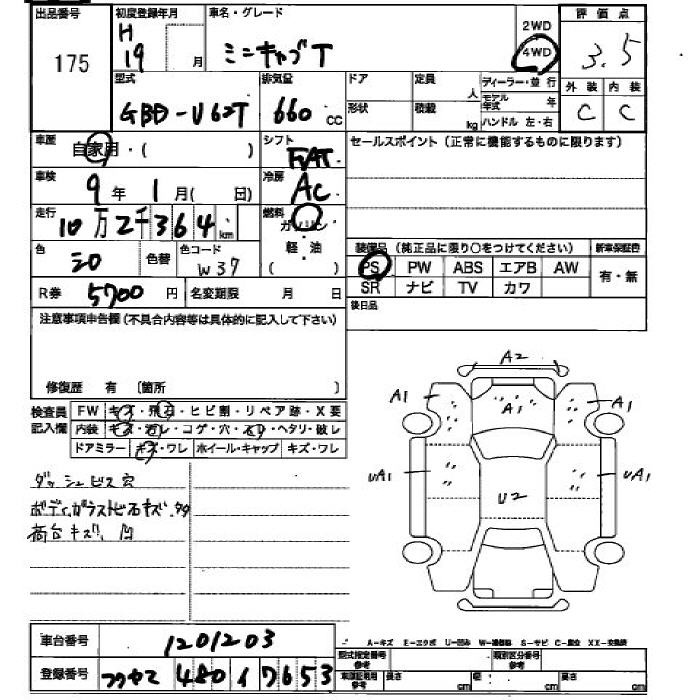 出品番号 初度登録年月 車名・グレード 2WD 評価点
175 H 19 月 ミニキャブT 4WD 3.5
型式 排気量 ドア 定員 人 ディーラー・並行 外装 内装
GBD-U62T 660 cc 形状 積載 kg モデル年式 年 C C
ハンドル 左・右
車歴 自家用・( ) シフト FAT セールスポイント(正常に機能するものに限ります)
車検 9年 1月( 日) 冷房 AC
走行 10万2千364km 燃料 ガソリン
色 シロ 色替 色コード W37 軽油 ( )
装備品(純正品に限り○をつけてください) 新車保証書
PS PW ABS エアB AW 有・無
SR ナビ TV カワ
R券 5700円 名変期限 月 日 後日品
注意事項申告欄(不具合内容等は具体的に記入して下さい)
修復歴 有 〔箇所 〕
検査員 FW キズ・飛石・ヒビ割・リペア跡・X要
記入欄 内装 キズ・汚レ・コゲ・穴・スリ・ヘタリ・破レ
ドアミラー キズ・ワレ ホイール・キャップ キズ・ワレ
ダッシュビス穴
ボディ,ガラストビ石キズ.
荷台キズ、凹
A2
A1 A1 A1
UA1 U2 UA1
A-キズ E-エクボ U-凹み W-補修跡 S-サビ C-腐食 XX-交換済
車台番号 1201203 型式指定番号 参考 類別区分番号 参考
登録番号 480 7653 車庫証明用 参考 長さ cm 幅 cm 高さ cm